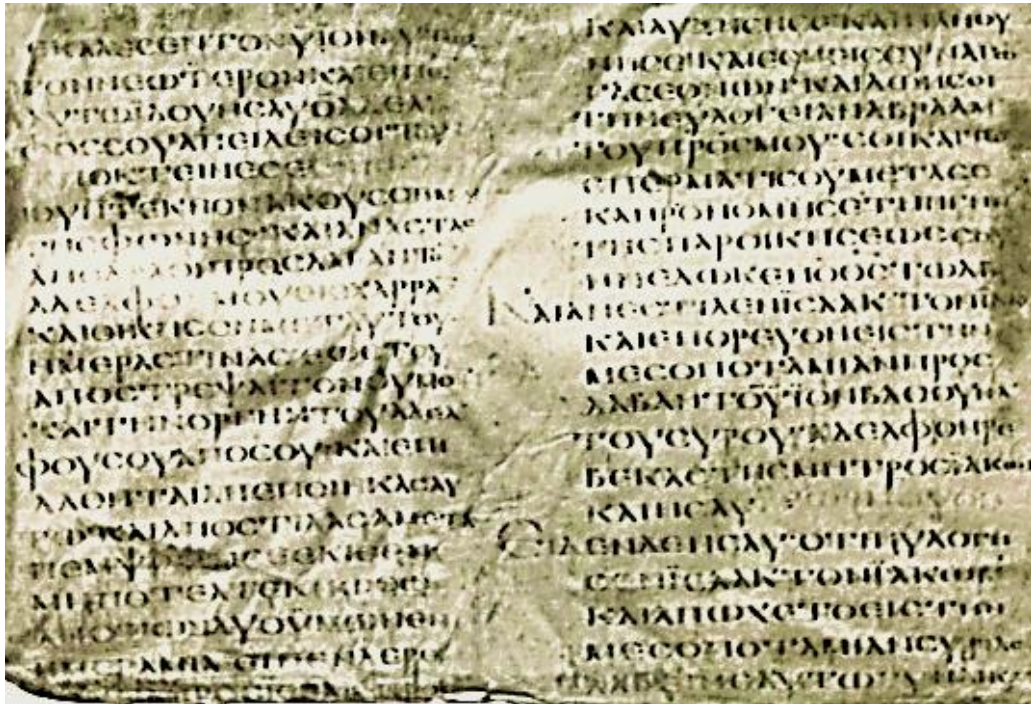 ΕΚΑΛΕϹΕΝΤΟΝΥΙΟΝΑΥ
ΤΟΝΝΕΩΤΕΡΟΝΚΑΙΕΙΠΕ
ΑΥΤΩΪΔΟΥΗϹΑΥΟΑΔΕΛ
ΦΟϹϹΟΥΑΠΕΙΛΕΙϹΟΙΤΟΥ
ΑΠΟΚΤΕΙΝΕϹΕ
ΟΥΝΤΕΚΝΟΝΑΚΟΥϹΟΝΜΟΥ
ΤΗϹΦΩΝΗϹΚΑΙΑΝΑϹΤΑϹ
ΑΠΟΔΡΑΘΙΠΡΟϹΛΑΒΑΝΤΟ
ΑΔΕΛΦΟΝΜΟΥΕΙϹΧΑΡΡΑ
ΚΑΙΟΙΚΗϹΟΝΜΕΤΑΥΤΟΥ
ΗΜΕΡΑϹΤΙΝΑϹΕΩϹΤΟΥ
ΑΠΟϹΤΡΕΨΑΙΤΟΝΘΥΜΟ
ΚΑΙΤΗΝΟΡΓΗΝΤΟΥΑΔΕΛ
ΦΟΥϹΟΥΑΠΟϹΟΥΚΑΙΕΠΙ
ΛΑΘΗΤΑΙΑΠΕΠΟΙΗΚΑϹΑΥ
ΤΩΚΑΙΑΠΟϹΤΙΛΑϹΑΜΕΤΑ
ΠΕΜΨΟΜΑΙϹΕΕΚΕΙΘΕΝ
ΜΗΠΟΤΕΑΤΕΚΝΩΘΩ
ΑΠΟΤΩΝΔΥΟΫΜΩΝΕΝ
ΗΜΕΡΑΜΙΑ ΕΙΠΕΝΔΕΡΕ
ΠΡΟϹΙϹΑΑΚ
ΚΑΙΑΥΞΗϹΗϹΕΚΑΙΠΛΗΘΥ
ΝΗϹΕΚΑΙΕϹΗΕΙϹϹΥΝΑΓΩ
ΓΑϹΕΘΝΩΝΚΑΙΔΩΗϹΟΙ
ΤΗΝΕΥΛΟΓΕΙΑΝΑΒΡΑΑΜ
ΤΟΥΠΡ̅Ϲ̅ΜΟΥϹΟΙΚΑΙΤΩ
ϹΠΕΡΜΑΤΙϹΟΥΜΕΤΑϹΕ
ΚΛΗΡΟΝΟΜΗϹΕΤΗΝΓΗΝ
ΤΗϹΠΑΡΟΙΚΗϹΕΩϹϹΟΥ
ΗΝΕΔΩΚΕΝΟΘ̅Ϲ̅ΤΩΑΒ
ΚΑΙΑΠΕϹΤΙΛΕΝΪϹΑΑΚΤΟΝΪΑΚΩ
ΚΑΙΕΠΟΡΕΥΘΗΕΙϹΤΗΝ
ΜΕϹΟΠΟΤΑΜΙΑΝΠΡΟϹ
ΛΑΒΑΝΤΟΫΪΟΝΒΑΘΟΥΗΛ
ΤΟΥϹΥΡΟΥΑΔΕΛΦΟΝΡΕ
ΒΕΚΑϹΤΗϹΜΗΤΡΟϹΪΑΚΩΒ
ΚΑΙΗϹΑΥ
ΕΙΔΕΝΔΕΗϹΑΥΟΤΙΗΥΛΟΓΗ
ϹΕΝΪϹΑΑΚΤΟΝΪΑΚΩΒ
ΚΑΙΑΠΩΧΕΤΟΕΙϹΤΗΝ
ΜΕϹΟΠΟΤΑΜΙΑΝϹΥΡΙΑϹ